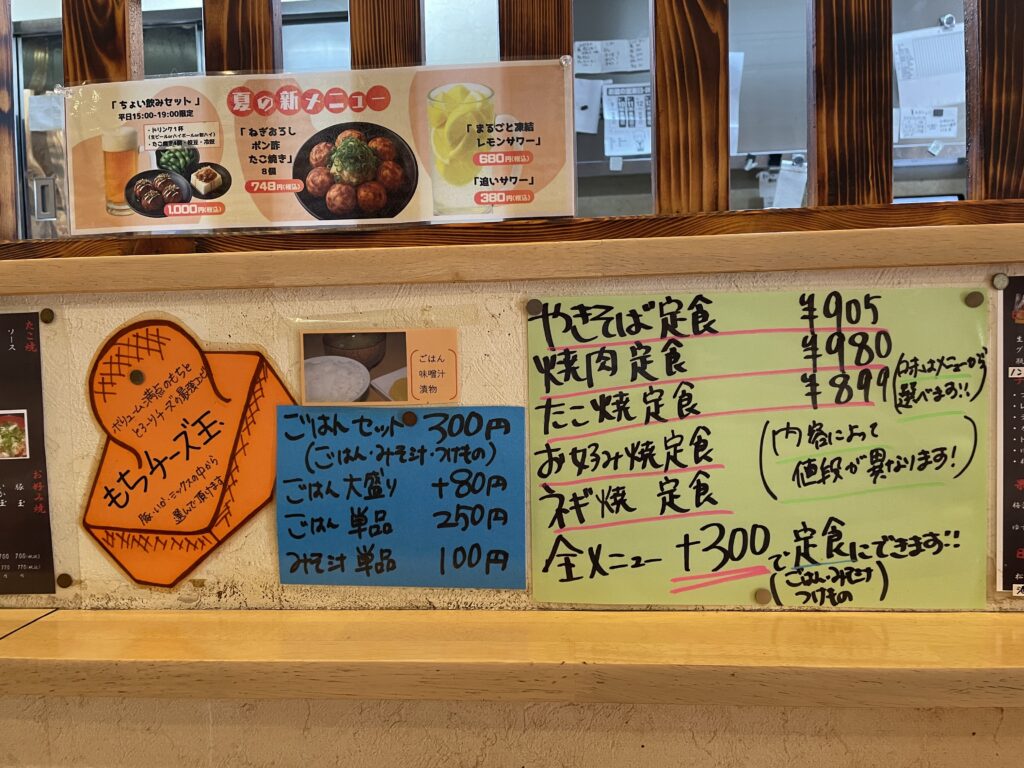 夏の新メニュー
「ちょい飲みセット」
平日15:00-19:00限定
・ドリンク1杯
(生ビールorハイボールor酎ハイ)
・たこ焼き4個・枝豆・冷奴
1,000円(税込)
「ねぎおろし
ポン酢
たこ焼き」
8個
748円(税込)
「まるごと凍結
レモンサワー」
680円(税込)
「追いサワー」
380円(税込)
たこ焼
ソース
お好み焼
豚玉
ボリューム満点のもちと
とろーりチーズの最強コンビ
もちチーズ玉、
豚・いか・ミックスの中から
選んで頂けます。
ごはん
味噌汁
漬物
ごはんセット 300円
(ごはん・みそ汁・つけもの)
ごはん大盛り +80円
ごはん 単品 250円
みそ汁 単品 100円
やきそば定食 ¥905
焼肉定食 ¥980
たこ焼定食 ¥899
(味はメニューから
選べます!!)
お好み焼定食
ネギ焼 定食
(内容によって
値段が異なります!)
全メニュー +300で定食にできます!!
(ごはん・みそ汁
つけもの)